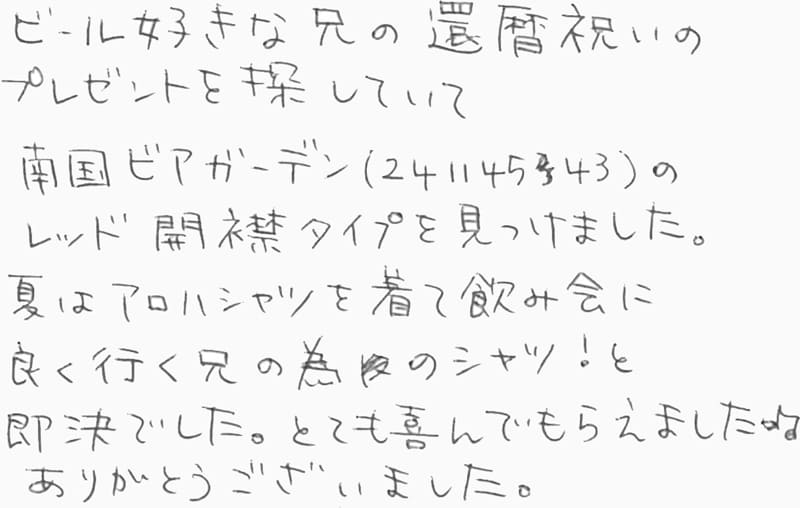 ビール好きな兄の還暦祝いの
プレゼントを探していて
南国ビアガーデン(241145343)の
レッド開襟タイプを見つけました。
夏はアロハシャツを着て飲み会に
良く行く兄の為のシャツ!と
即決でした。とても喜んでもらえました♪
ありがとうございました。